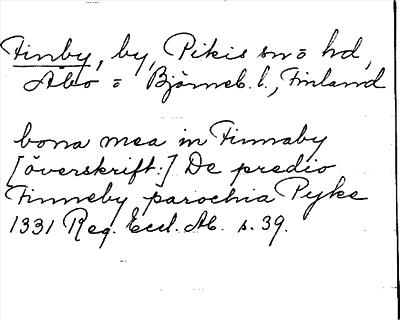 Finby, by, Pikis sn = hd,
Åbo = Björneb. l., Finland
bona mea in Finnaby
[överskrift:] De predio
Finneby parochia Pyke
1331 Reg. Eccl. Ab. s. 39.